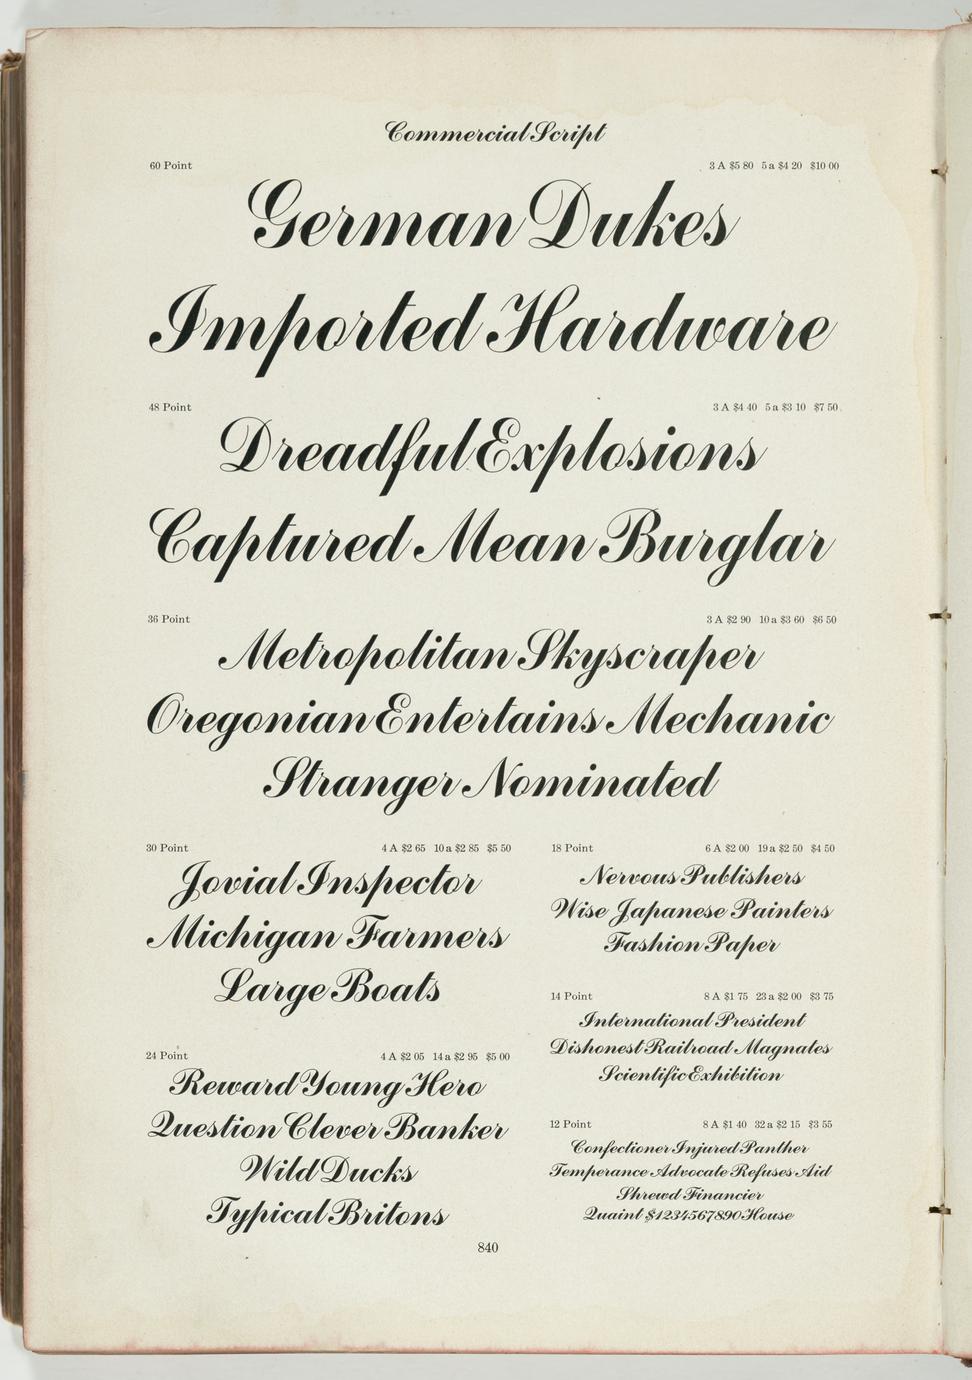 Commercial Script
60 Point 3 A $5 80 5 a $4 20 $10 00
German Dukes
Imported Hardware
48 Point 3 A $4 40 5 a $3 10 $7 50
Dreadful Explosions
Captured Mean Burglar
36 Point 3 A $2 90 10 a $3 60 $6 50
Metropolitan Skyscraper
Oregonian Entertains Mechanic
Stranger Nominated
30 Point 4 A $2 65 10 a $2 85 $5 50
Jovial Inspector
Michigan Farmers
Large Boats
24 Point 4 A $2 05 14 a $2 95 $5 00
Reward Young Hero
Question Clever Banker
Wild Ducks
Typical Britons
18 Point 6 A $2 00 19 a $2 50 $4 50
Nervous Publishers
Wise Japanese Painters
Fashion Paper
14 Point 8 A $1 75 23 a $2 00 $3 75
International President
Dishonest Railroad Magnates
Scientific Exhibition
12 Point 8 A $1 40 32 a $2 15 $3 55
Confectioner Injured Panther
Temperance Advocate Refuses Aid
Shrewd Financier
Quaint $1234567890 House
840